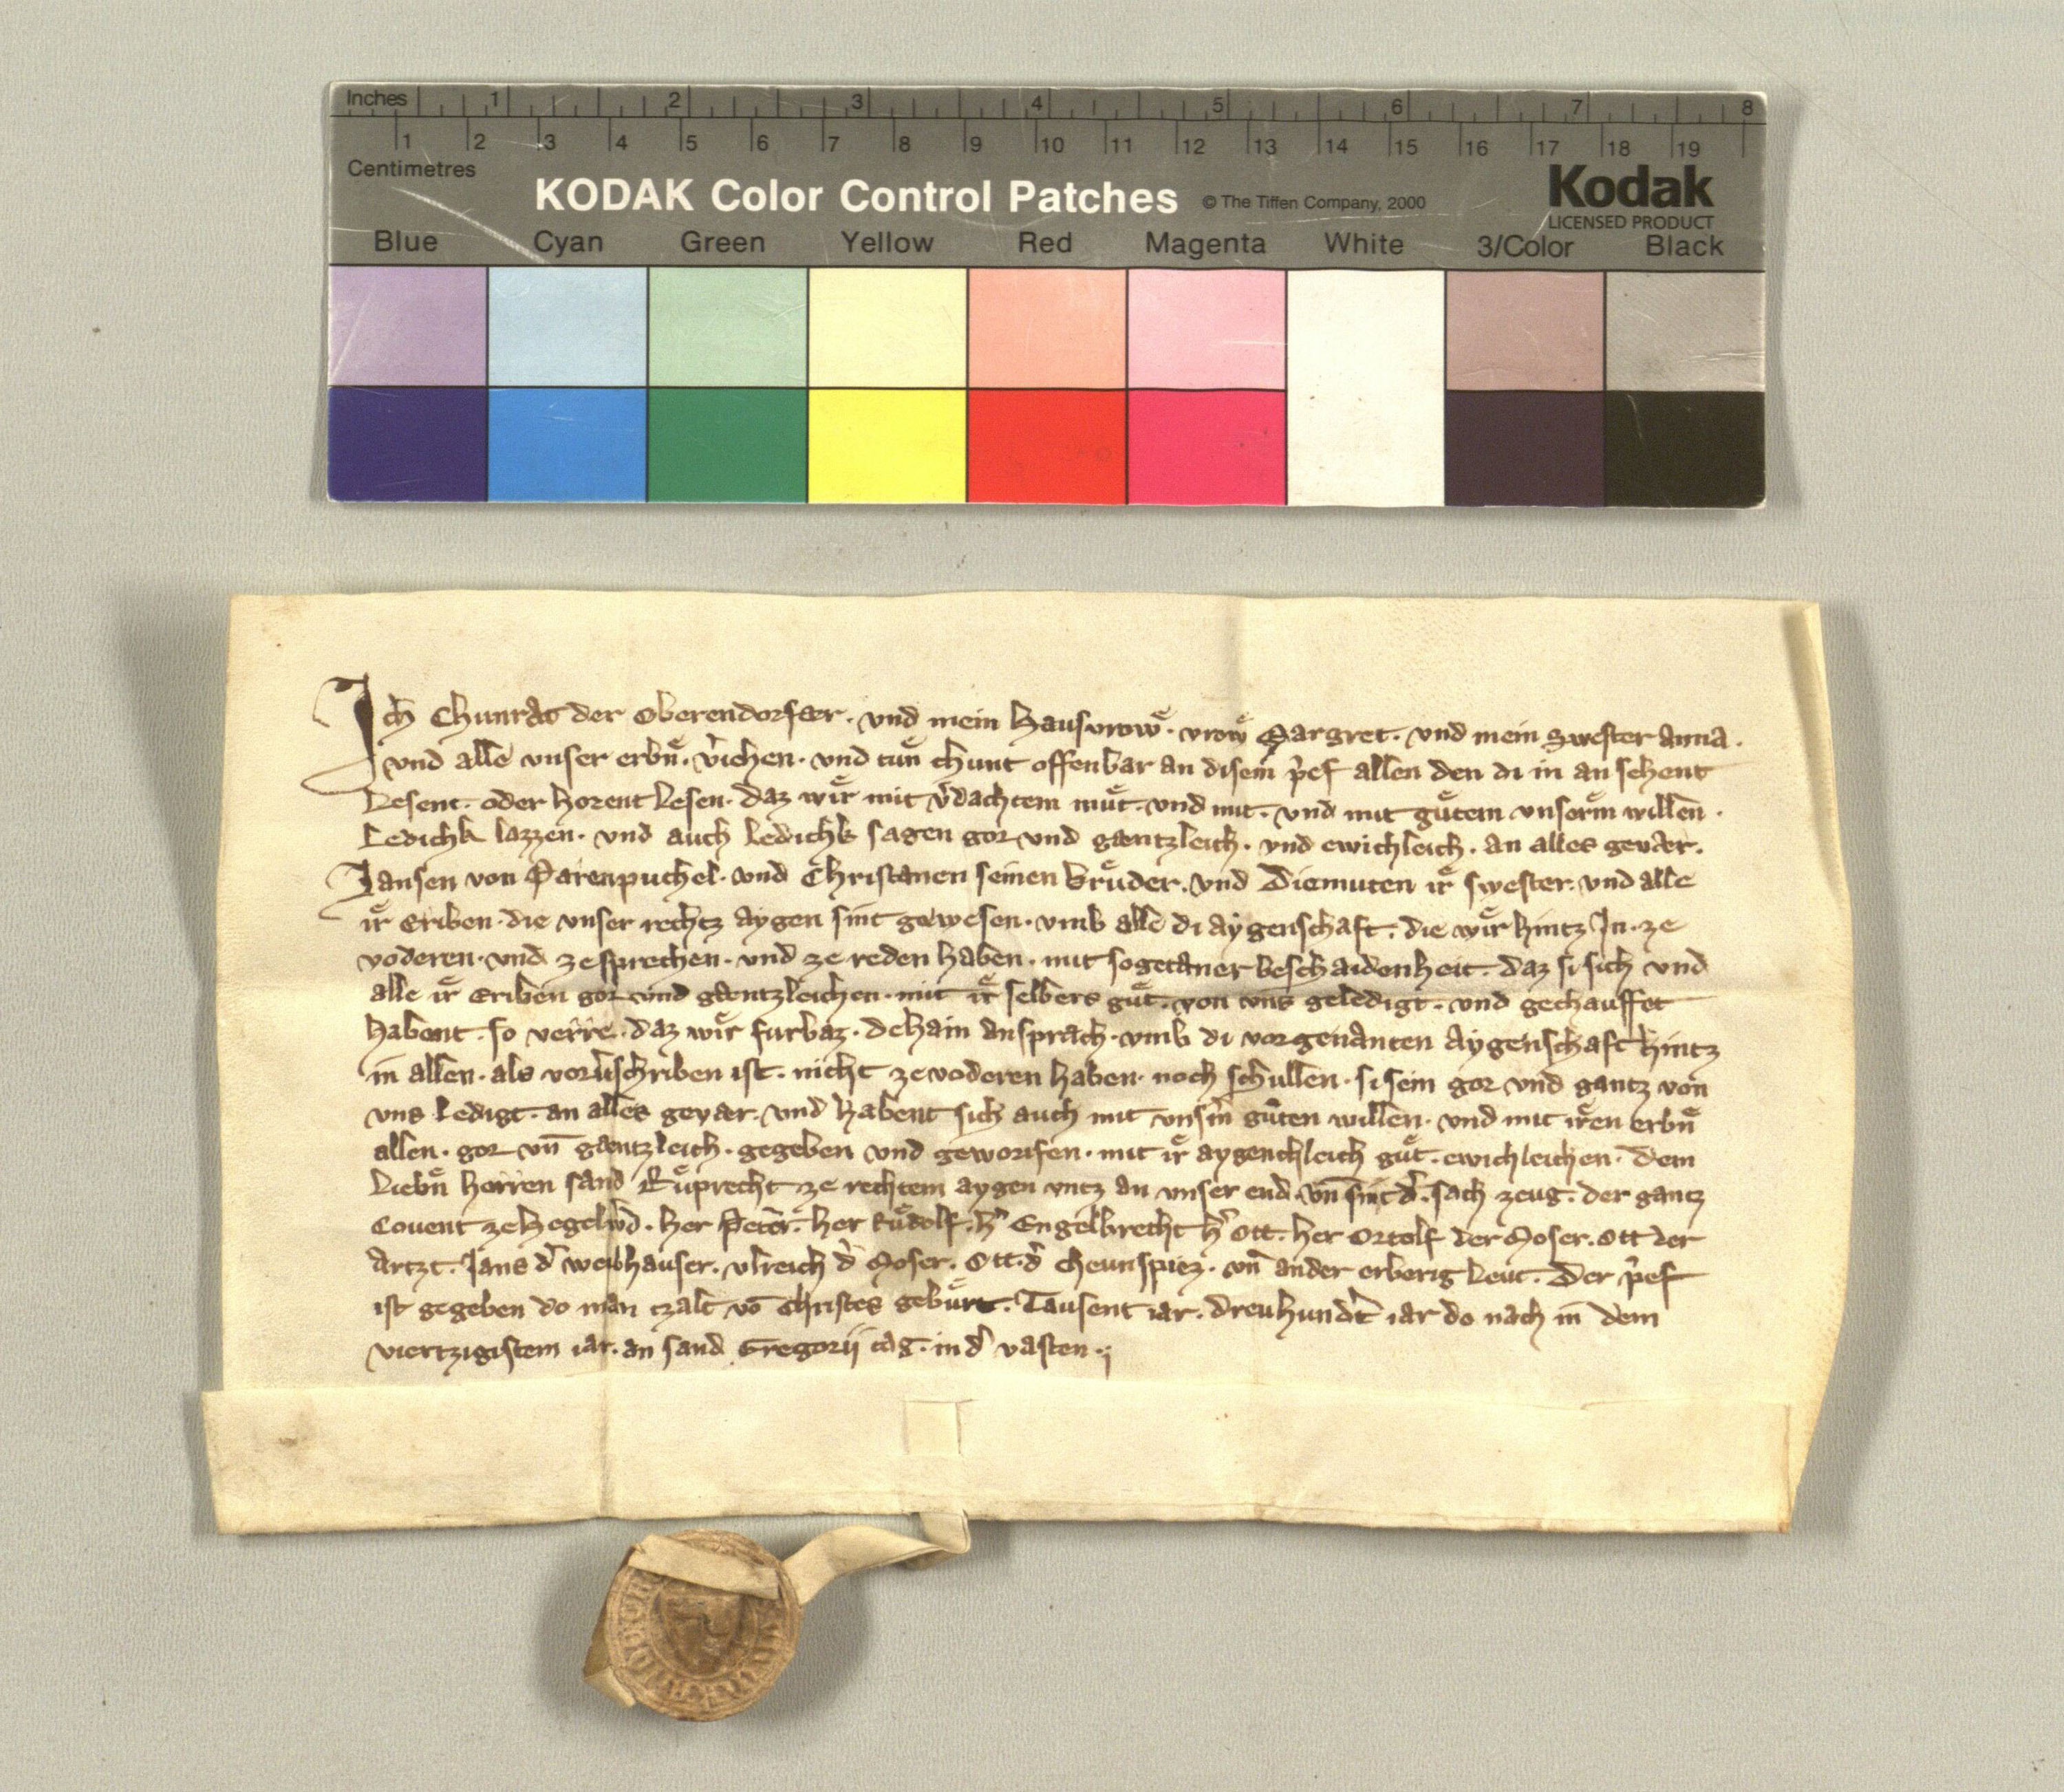 Inches 1 2 3 4 5 6 7 8
1 2 3 4 5 6 7 8 9 10 11 12 13 14 15 16 17 18 19
Centimetres
KODAK Color Control Patches © The Tiffen Company, 2000 Kodak
LICENSED PRODUCT
Blue Cyan Green Yellow Red Magenta White 3/Color Black
Ich Chunrat der Oberendorfær · vnd mein Hausvrowͤ · vrowͤ Margret · vnd mein Swester Anna ·
vnd alle vnser erbn̄ · v̓iehen · vnd tůn chunt offenbar an disem p̓ef allen den di in an sehent
Lesent · oder horent Lesen · daz wir mit v̓dachtem můt · vnd mit · vnd mit gůtem vnserm willen ·
Ledichk lazzen · vnd auch Ledichk sagen gor vnd gæntzleich · vnd ewichleich · an alles gevær ·
Jansen von Parenpuchel · vnd Christanen seinen brůder · vnd Diemuten ir swester · vnd alle
ir Eriben · die vnser rechtz aygen sint gewesen · vmb alle di aygenschaft · die wir hintz In · ze
voderen · vnd ze sprechen · vnd ze reden haben · mit sogetaner beschaidenheit · daz si sich vnd
alle ir Eriben gor vnd gæntzleichen · mit ir selbers gůt · von vns geledigt · vnd gechauffet
habent · so verre · daz wir furbaz · dehain ansprach · vmb di vorgenanten Aygenschaft hintz
in allen · als vorv̓schriben ist · nicht ze voderen haben · noch schullen · si sein gor vnd gantz von
vns Ledigt · an alles gevær · vnd habent sich auch mit vns̓m gůten willen · vnd mit iren erbn̄
allen · gor vn̄ gæntzleich · gegeben vnd geworifen · mit ir aygenchleich gůt · ewichleichen · Dem
Liebn̄ herren sand Růprecht ze rechtem aygen vntz an vnser end · vn̄ sint d̓ · sach zeug · der gantz
Couent ze Hegelw̓d · her Peter · her Růdolf · h̓ Engelbrecht h̓ Ott · her Ortolf der Moser · Ott der
Artzt · Jans d̓ weibhauser · vlreich d̓ Moser · Ott · d̓ Cheunspiez · vn̄ ander erberig Leut · Der p̓ef
ist gegeben do man tzalt vō Christes gebůrt · Tausent iar · dreuhund̓t iar do nach in dem
viertzigistem iar · an sand Gregorii tag · in d̓ vasten ·